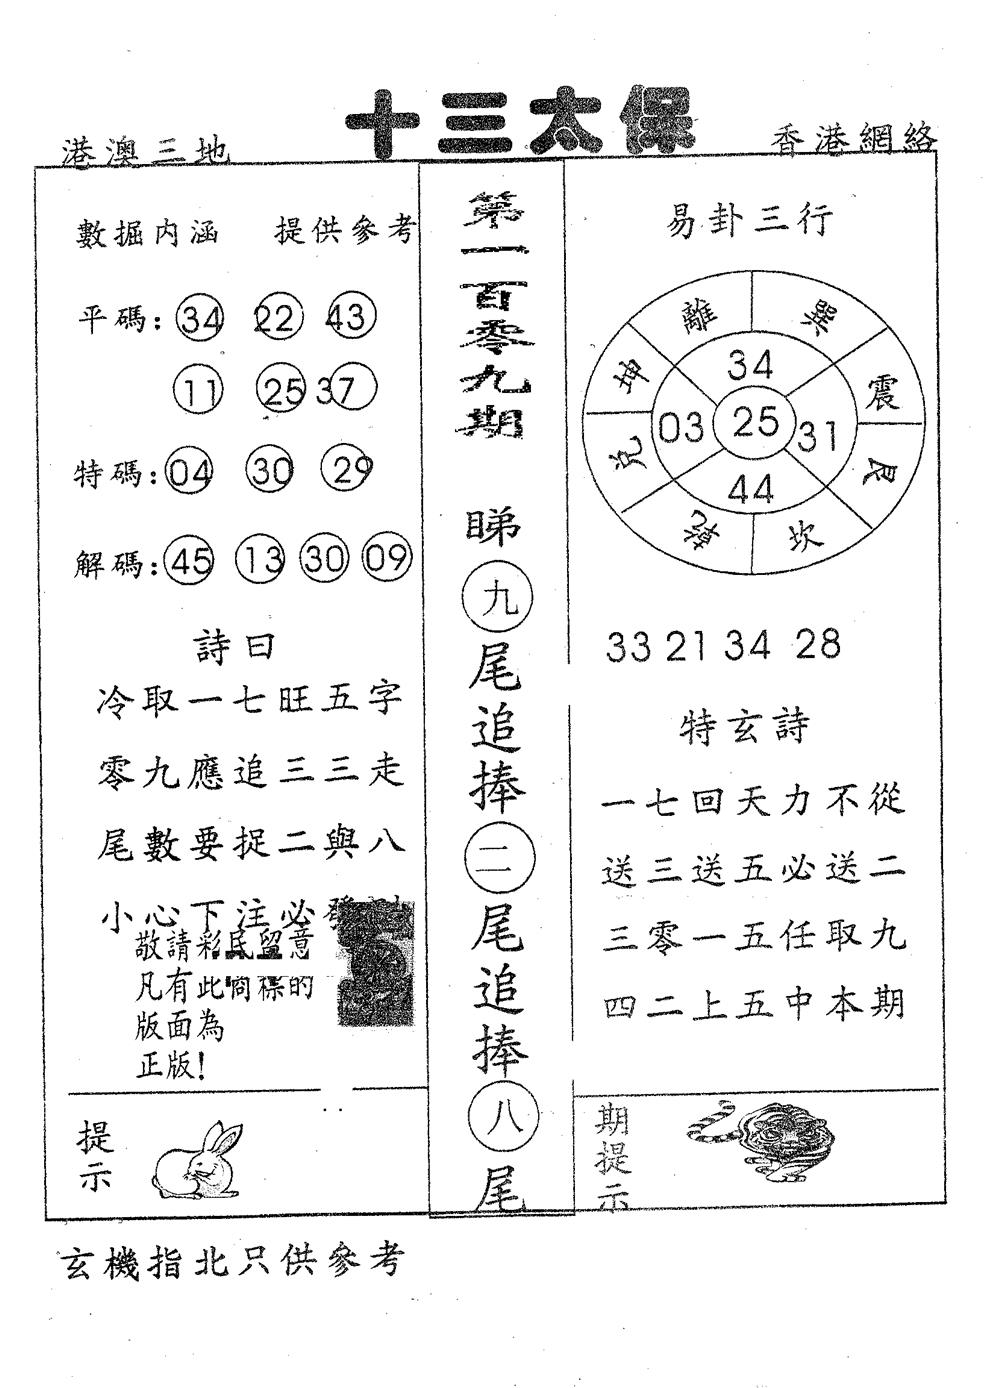 十三太保
港澳三地
香港網絡
數掘内涵 提供參考
平碼: 34 22 43
11 25 37
特碼: 04 30 29
解碼: 45 13 30 09
詩曰
冷取一七旺五字
零九應追三三走
尾數要捉二與八
小心下注必發
敬請彩民留意
凡有此商標的
版面為
正版!
提示
第一百零九期
睇九尾追捧二尾追捧八尾
易卦三行
離 巽
坤 震
兌 艮
乾 坎
34
03 25 31
44
33 21 34 28
特玄詩
一七回天力不從
送三送五必送二
三零一五任取九
四二上五中本期
期提示
玄機指北只供參考